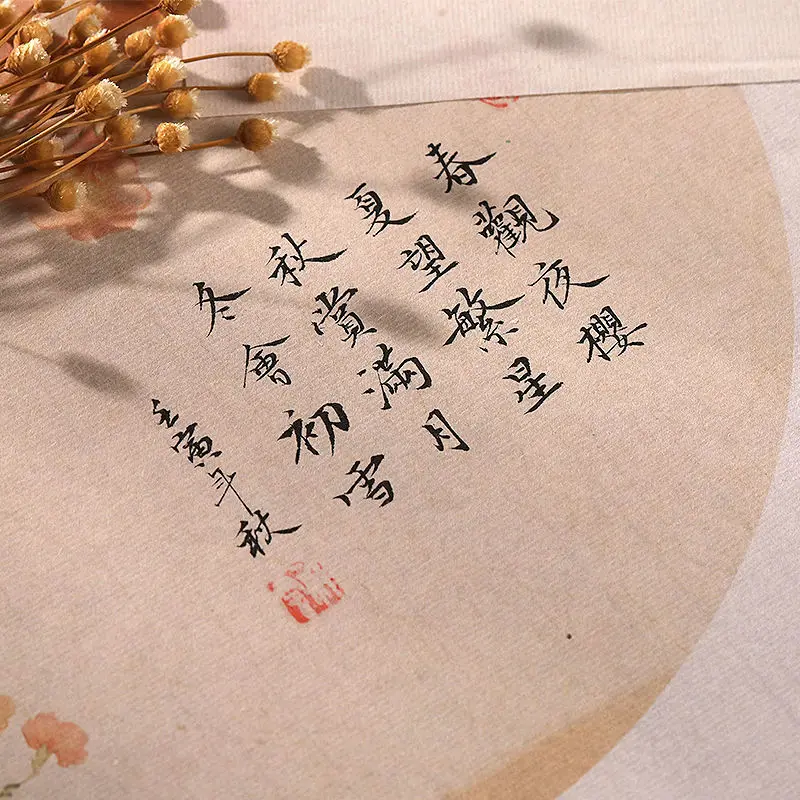 春觀夜櫻
夏望繁星
秋賞滿月
冬會初雪
壬寅年秋